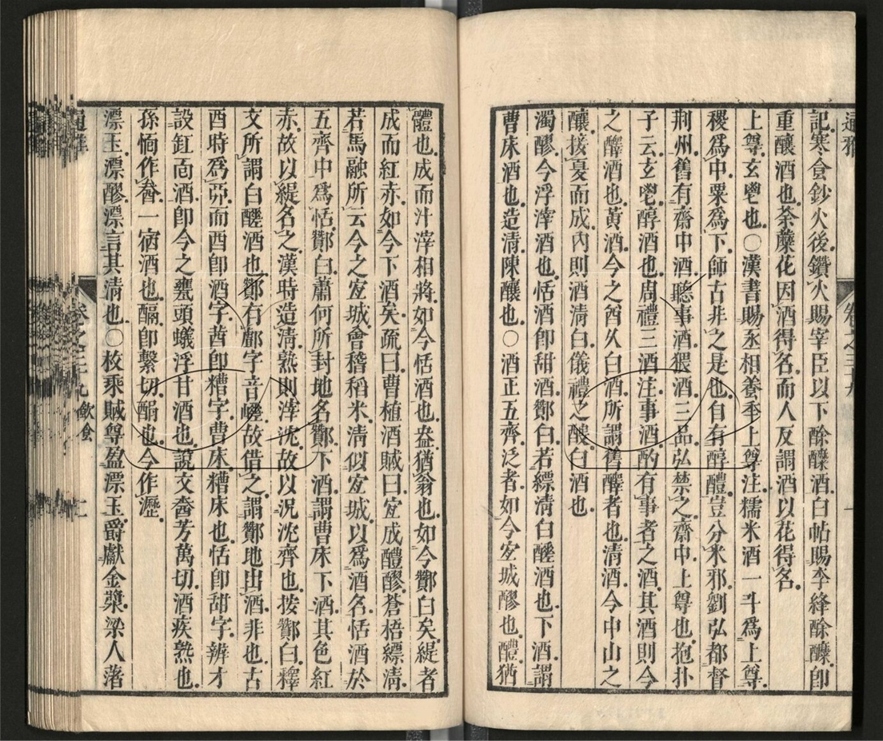 記寒食鈔火後鑽火賜宰臣以下酴醾酒白帖賜李絳酴醾即
重釀酒也荼蘪花因酒得名而人反謂酒以花得名
上尊玄鬯也○漢書賜丞相養牛上尊注糯米酒一斗爲上尊
稷爲中粟爲下師古非之是也自有醇醴豈分米邪劉弘都督
荆州舊有齋中酒聽事酒猥酒三品弘禁之齋中上尊也抱朴
子云玄鬯醇酒也周禮三酒注事酒酌有事者之酒其酒則今
之醳酒也黄酒今之酋久白酒所謂舊醳者也清酒今中山之
釀接夏而成内則酒清白儀禮之酸白酒也
濁醪今浮滓酒也恬酒即甜酒酇白若縹清白醝酒也下酒謂
曹床酒也造清陳釀也○酒正五齊泛者如今宜城醪也醴猶
體也成而汁滓相將如今恬酒也盎猶翁也如今酇白矣緹者
成而紅赤如今下酒矣疏曰曹植酒賦曰宜成醴醪蒼梧縹清
若馬融所云今之宜城會稽稻米清似宜城以爲酒名恬酒於
五齊中爲恬酇白蕭何所封地名酇下酒謂曹床下酒其色紅
赤故以緹名之漢時造清熟則滓沈故以况沈齊也按酇白釋
文所謂白醝酒也酇有酂字音嵯故借之謂酇地出酒非也古
酉時爲丣而酉即酒字茜即糟字曹床糟床也恬即甜字辨才
設缸面酒即今之甕頭蟻浮甘酒也說文 芳萬切酒疾熟也
孫愐作 一宿酒也 即繫切 也今作瀝
漂玉漂醪漂言其清也○枚乘賦尊盈漂玉爵獻金漿梁人藷
通雅
卷之三十九
通雅
卷之三十九 飲食